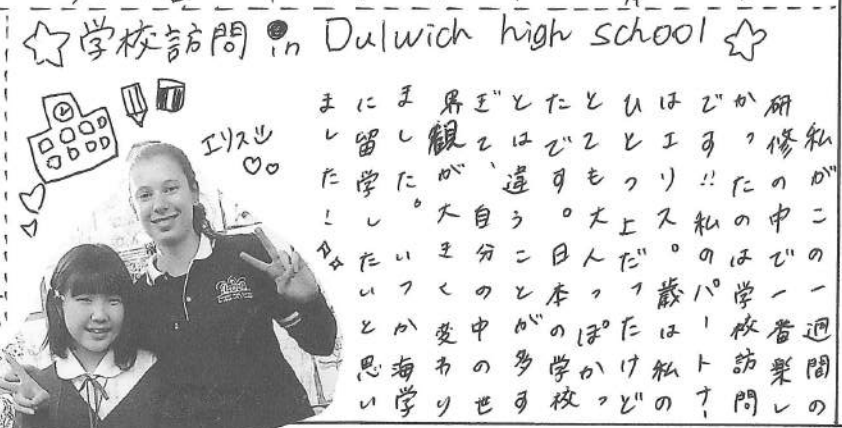 学校訪問 in Dulwich high school
エリス
私がこの一週間の
研修の中で一番楽し
かったのは学校訪問
です!!私のパートナー
はエリス。歳は私の
ひとつ上だったけど
とても大人っぽかっ
たです。日本の学校
とは違うことが多す
ぎて、自分の中の世
界観が大きく変わり
ました。いつか海学
に留学したいと思い
ました!